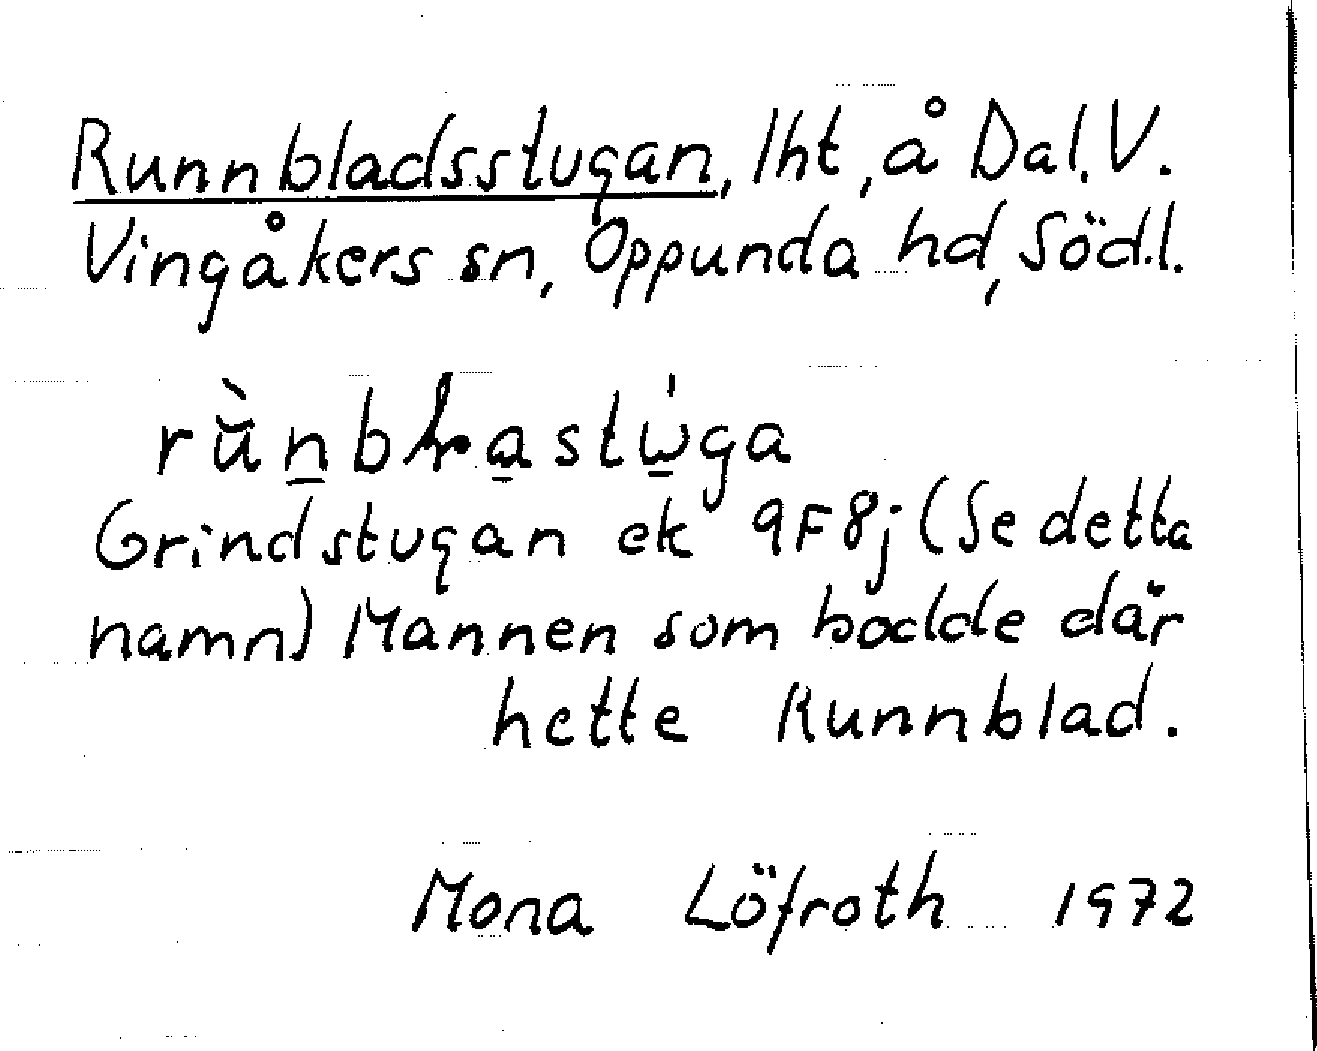 Runnbladsstugan, lht, å Dal, V.
Vingåkers sn, Oppunda hd, Södl.
Grindstugan ek 9F8j (Se detta
namn) Mannen som bodde där
hette Runnblad.
Mona Löfroth 1972